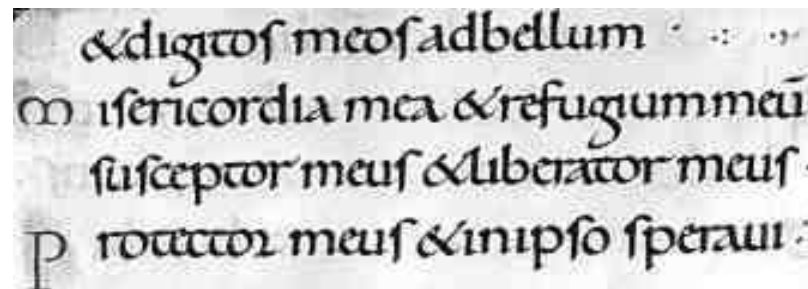 &digitos meos adbellum
Misericordia mea &refugium meū
susceptor meus &liberator meus
Protector meus &inipso speraui